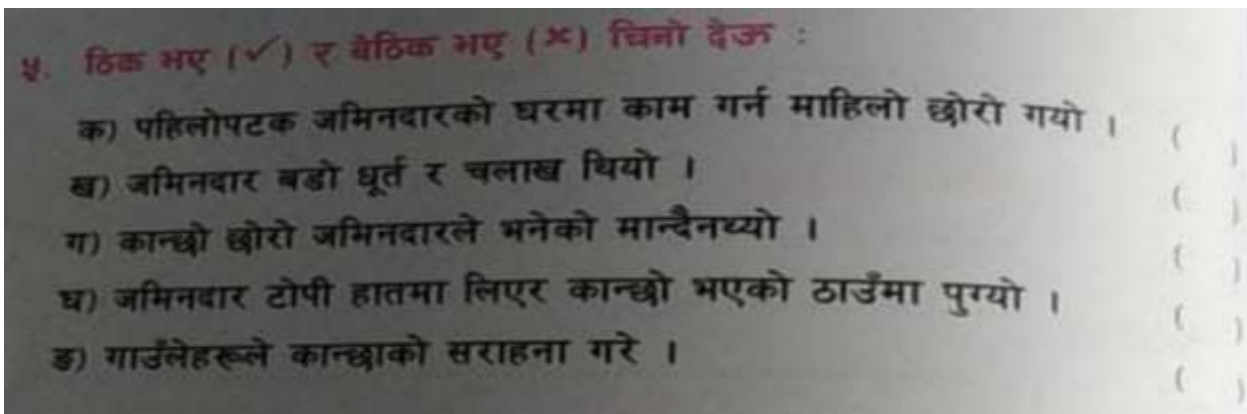 ५. ठिक भए (✓) र बेठिक भए (×) चिनो देऊ :
क) पहिलोपटक जमिनदारको घरमा काम गर्न माहिलो छोरो गयो । ( )
ख) जमिनदार बडो धूर्त र चलाख थियो । ( )
ग) कान्छो छोरो जमिनदारले भनेको मान्दैनथ्यो । ( )
घ) जमिनदार टोपी हातमा लिएर कान्छो भएको ठाउँमा पुग्यो । ( )
ङ) गाउँलेहरूले कान्छाको सराहना गरे । ( )